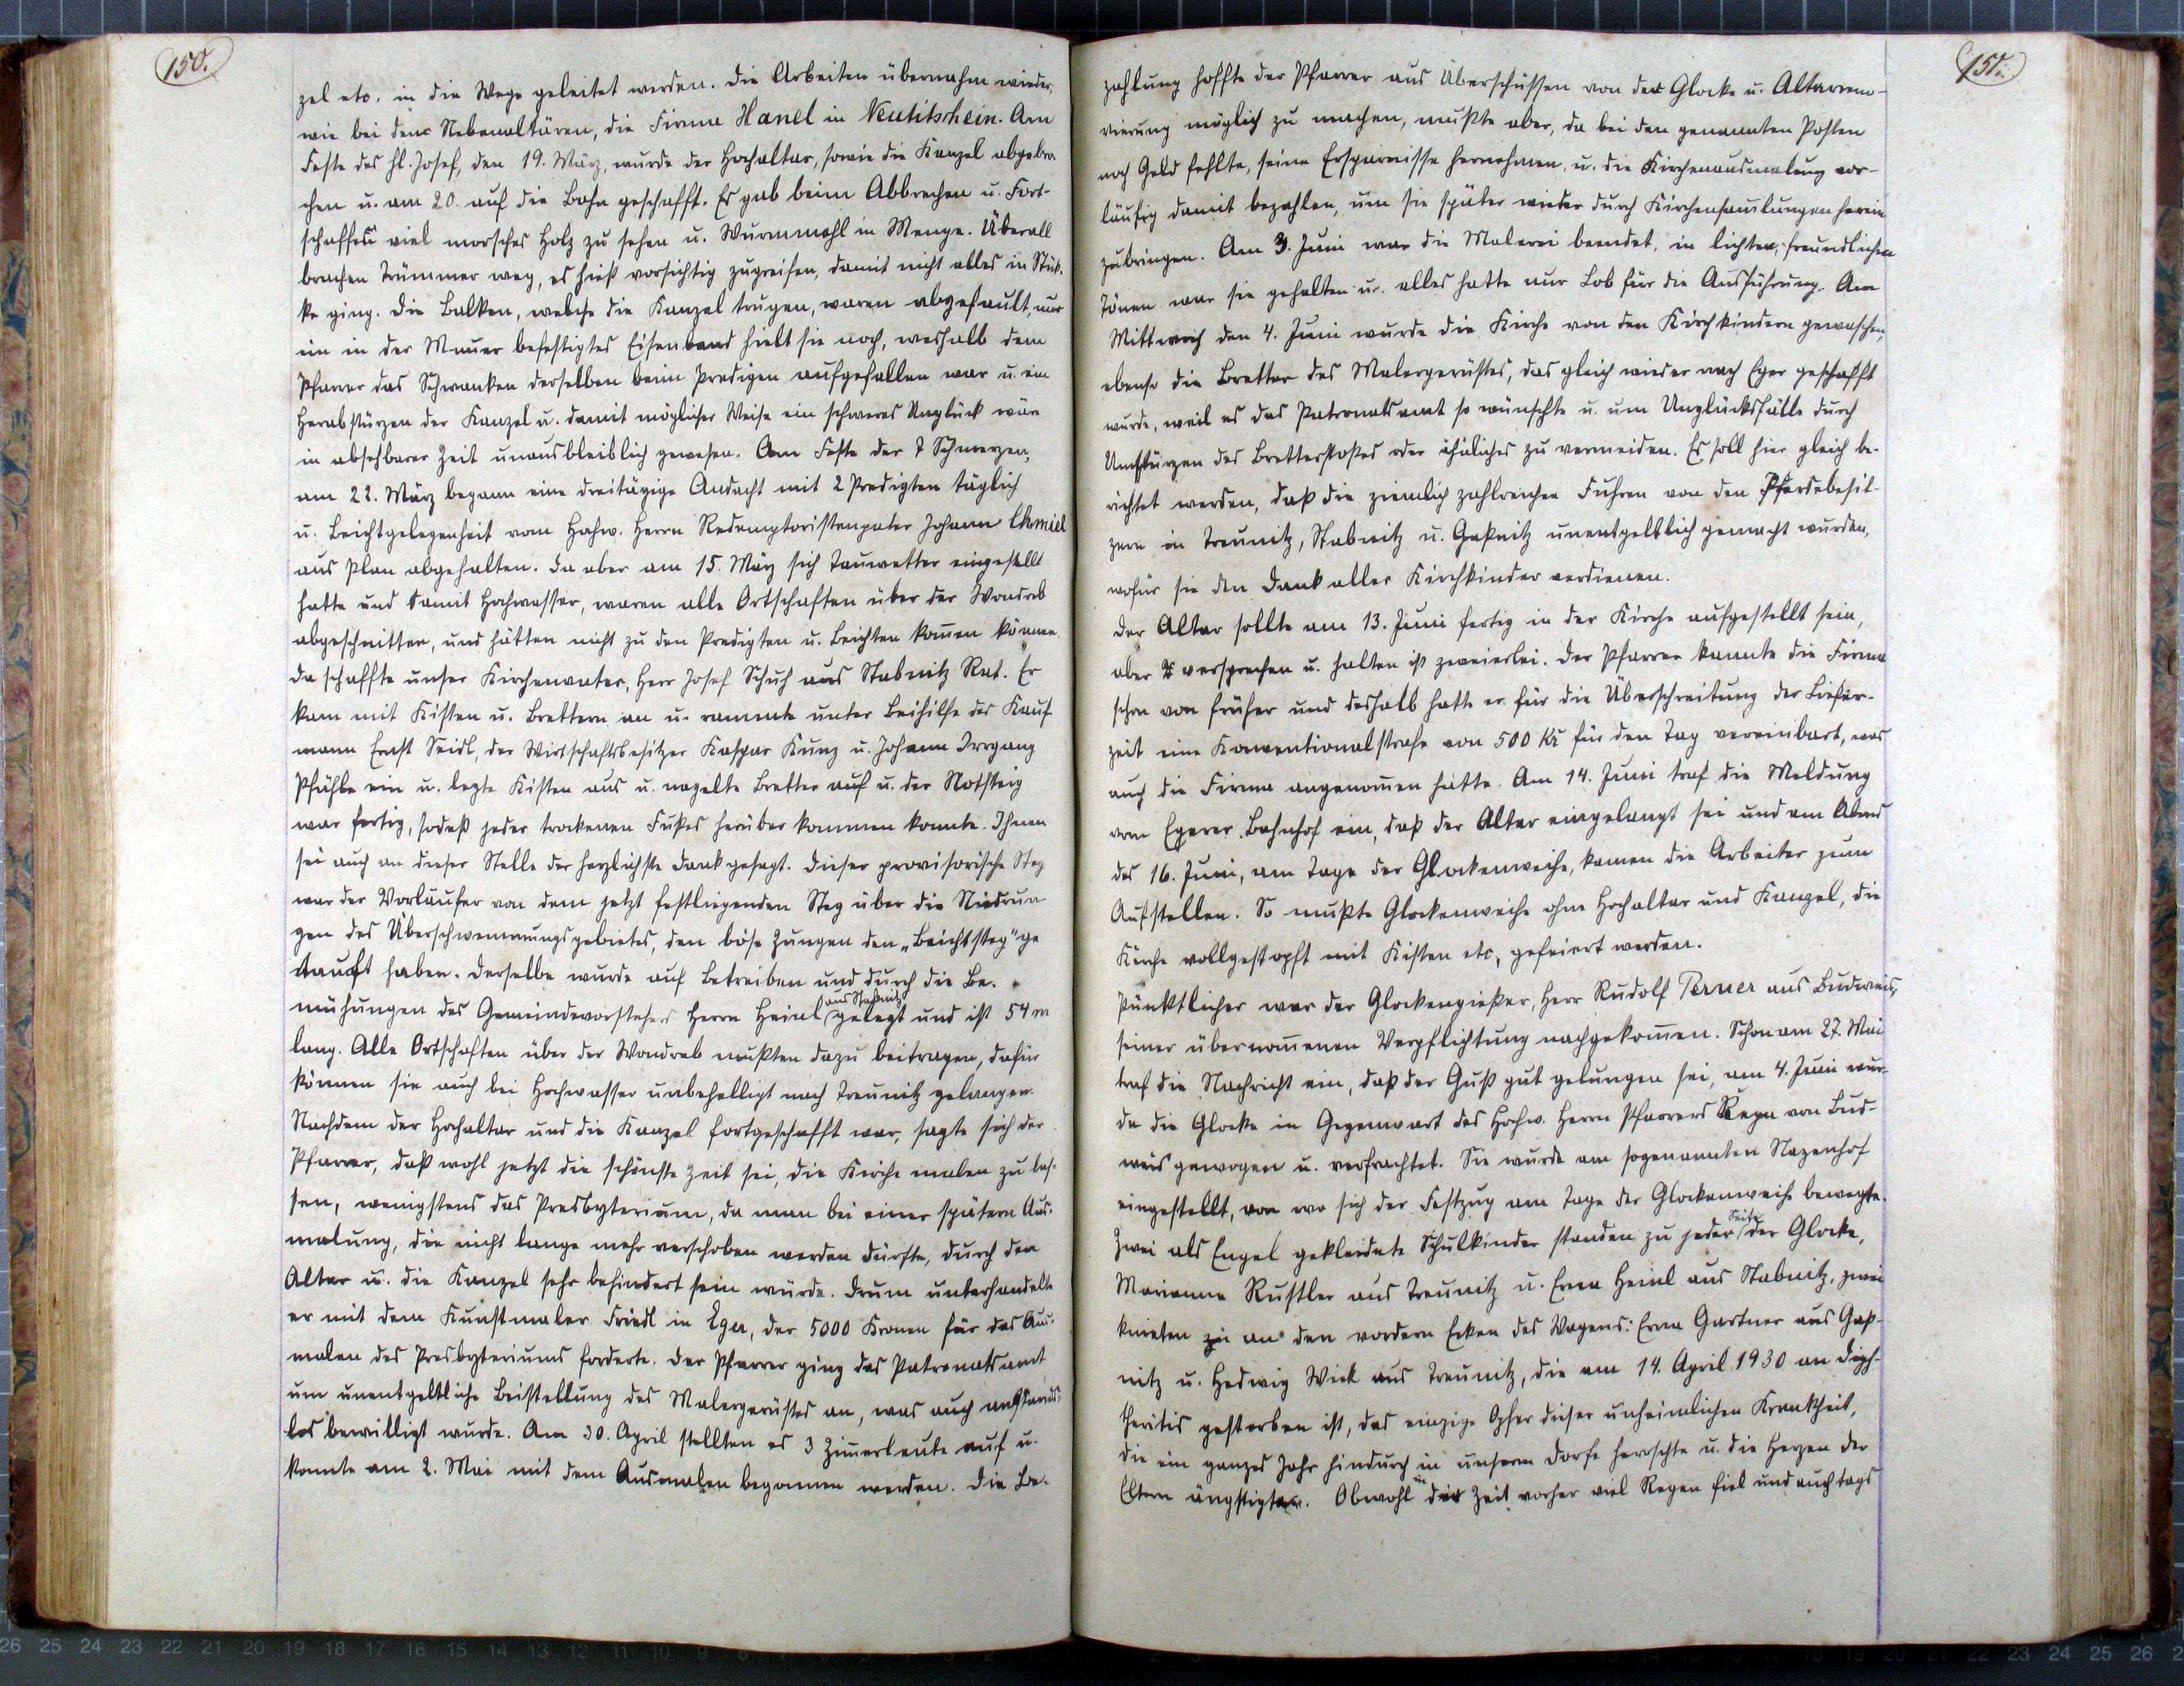 150.
zel etc. in die Wege geleitet werden. Die Arbeiten übernahm wieder,
wie bei den Nebenaltären, die Firma Hanel in Neutitschein. Am
Feste des hl. Josef, den 19. März, wurde der Hochaltar, sowie die Kanzel abgebro-
chen u. am 20. auf die Bahn geschafft. Es gab beim Abbrechen u. Fort-
schaffen viel morsches Holz zu sehen u. Wurmmehl in Menge. Überall
brachen Trümmer weg, es hieß vorsichtig zugreifen, damit nicht alles in Stük-
ke ging. Die Balken, welche die Kanzel trugen, waren abgefault, nur
ein in der Mauer befestigtes Eisenband hielt sie noch, weshalb dem
Pfarrer das Schwanken derselben beim Predigen aufgefallen war u. ein
Herabstürzen der Kanzel u. damit möglicher Weise ein schweres Unglück wäre
in absehbarer Zeit unausbleiblich gewesen. Am Feste der 7 Schmerzen,
am 22. März begann eine dreitägige Andacht mit 2 Predigten täglich
u. Beichtgelegenheit vom Hochw. Herrn Redemptoristenpater Johann Chmiel
aus Plan abgehalten. Da aber am 15. März sich Tauwetter eingestellt
hatte und damit Hochwasser, waren alle Ortschaften über der Wondreb
abgeschnitten, und hätten nicht zu den Predigten u. Beichten kom̄en können.
Da schaffte unser Kirchenvater, Herr Josef Schuh aus Stabnitz Rat. Er
kam mit Kisten u. Brettern an u. rammte unter Beihilfe des Kauf-
mann Ernst Seidl, der Wirtschaftsbesitzer Kaspar Kunz u. Johann Irrgang
Pfähle ein u. legte Kisten aus u. nagelte Bretter auf u. der Notsteig
war fertig, sodaß jeder trockenen Fußes herüber kommen konnte. Ihnen
sei auch an dieser Stelle der herzlichste Dank gesagt. Dieser provisorische Steg
war der Vorläufer von dem jetzt festliegenden Steg über die Niedrun-
gen des Überschwemmungsgebietes, den böse Zungen den „Beichtsteg" ge-
tauft haben. Derselbe wurde auf Betreiben und durch die Be-
mühungen des Gemeindevorstehers Herrn Heinl aus Stabnitz gelegt und ist 54 m
lang. Alle Ortschaften über der Wondreb mußten dazu beitragen, dafür
können sie auch bei Hochwasser unbehelligt nach Treunitz gelangen.
Nachdem der Hochaltar und die Kanzel fortgeschafft war, sagte sich der
Pfarrer, daß wohl jetzt die schönste Zeit sei, die Kirche malen zu las-
sen, wenigstens das Presbyterium, da man bei einer spätern Aus-
malung, die nicht lange mehr verschoben werden dürfte, durch den
Altar u. die Kanzel sehr behindert sein würde. Drum unterhandelte
er mit dem Kunstmaler Friedl in Eger, der 5000 Kronen für das Aus-
malen des Presbyteriums forderte. Der Pfarrer ging das Patronatsamt
um unentgeltliche Beistellung des Malergerüstes an, was auch anstands-
los bewilligt wurde. Am 30. April stellten es 3 Zim̄erleute auf u.
konnte am 2. Mai mit dem Ausmalen begonnen werden. Die Be-
151.
zahlung hoffte der Pfarrer aus Überschüssen von der Glocke u. Altarreno-
vierung möglich zu machen, mußte aber, da bei den genannten Posten
noch Geld fehlte, seine Ersparnisse hernehmen, u. die Kirchenausmalung vor-
läufig damit bezahlen, um sie später wieder durch Kirchensam̄lungen herein-
zubringen. Am 3. Juni war die Malerei beendet, in lichten, freundlichen
Tönen war sie gehalten u. alles hatte nur Lob für die Ausführung. Am
Mittwoch den 4. Juni wurde die Kirche von den Kirchkindern gewaschen,
ebenso die Bretter des Malergerüstes, das gleich wieder nach Eger geschafft
wurde, weil es das Patronatsamt so wünschte u. um Unglücksfälle durch
Umstürzen des Bretterstoßes oder ähnliches zu vermeiden. Es soll hier gleich be-
richtet werden, daß die ziemlich zahlreichen Fuhren von den Pferdebesit-
zern in Treunitz, Stabnitz u. Gaßnitz unentgeltlich gemacht wurden,
wofür sie den Dank aller Kirchkinder verdienen.
Der Altar sollte am 13. Juni fertig in der Kirche aufgestellt sein,
aber versprechen u. halten ist zweierlei. Der Pfarrer kannte die Firma
schon von früher und deshalb hatte er für die Überschreitung der Liefer-
zeit eine Konventionalstrafe von 500 Kč für den Tag vereinbart, was
auch die Firma angenom̄en hatte. Am 14. Juni traf die Meldung
vom Egerer Bahnhof ein, daß der Altar eingelangt sei und am Abend
des 16. Juni, am Tage der Glockenweihe, kamen die Arbeiter zum
Aufstellen. So mußte Glockenweihe ohne Hochaltar und Kanzel, die
Kirche vollgestopft mit Kisten etc, gefeiert werden.
Pünktlicher war der Glockengießer, Herr Rudolf Perner aus Budweis,
seiner übernom̄enen Verpflichtung nachgekom̄en. Schon am 27. Mai
traf die Nachricht ein, daß der Guß gut gelungen sei, am 4. Juni wur-
de die Glocke in Gegenwart des Hochw. Herrn Pfarrers von Bud-
weis gewogen u. verfrachtet. Sie wurde am sogenannten Nazenhof
eingestellt, von wo sich der Festzug am Tage der Glockenweihe bewegte.
Zwei als Engel gekleidete Schulkinder standen zu jeder Seite der Glocke,
Marianne Rustler aus Treunitz u. Erna Heinl aus Stabnitz, zwei
knieten an den vordern Ecken des Wagens: Erna Gartner aus Gaß-
nitz u. Hedwig Wick aus Treunitz, die am 14. April 1930 an Diph-
theritis gestorben ist, das einzige Opfer dieser unheimlichen Krankheit,
die ein ganzes Jahr hindurch in unserem Dorfe herrschte u. die Herzen der
Eltern ängstigte. Obwohl in der Zeit vorher viel Regen fiel und auch tags